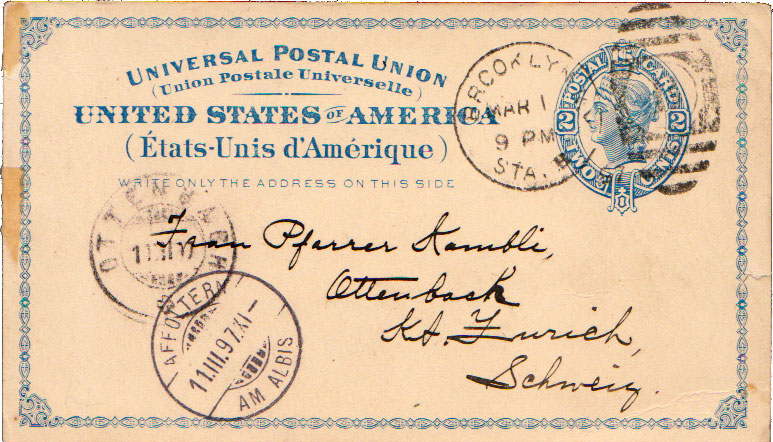 UNIVERSAL POSTAL UNION
(Union Postale Universelle)
UNITED STATES OF AMERICA
(États-Unis d'Amérique)
WRITE ONLY THE ADDRESS ON THIS SIDE
BROOKLYN
MAR 1
9 PM
STA.
POSTAL CARD
2 2
TWO CENTS
Frau Pfarrer Kambli,
Ottenbach
Kt. Zurich,
Schweiz.
OTTENBACH
AFFOLTERN
11.III.97.XI-
AM ALBIS